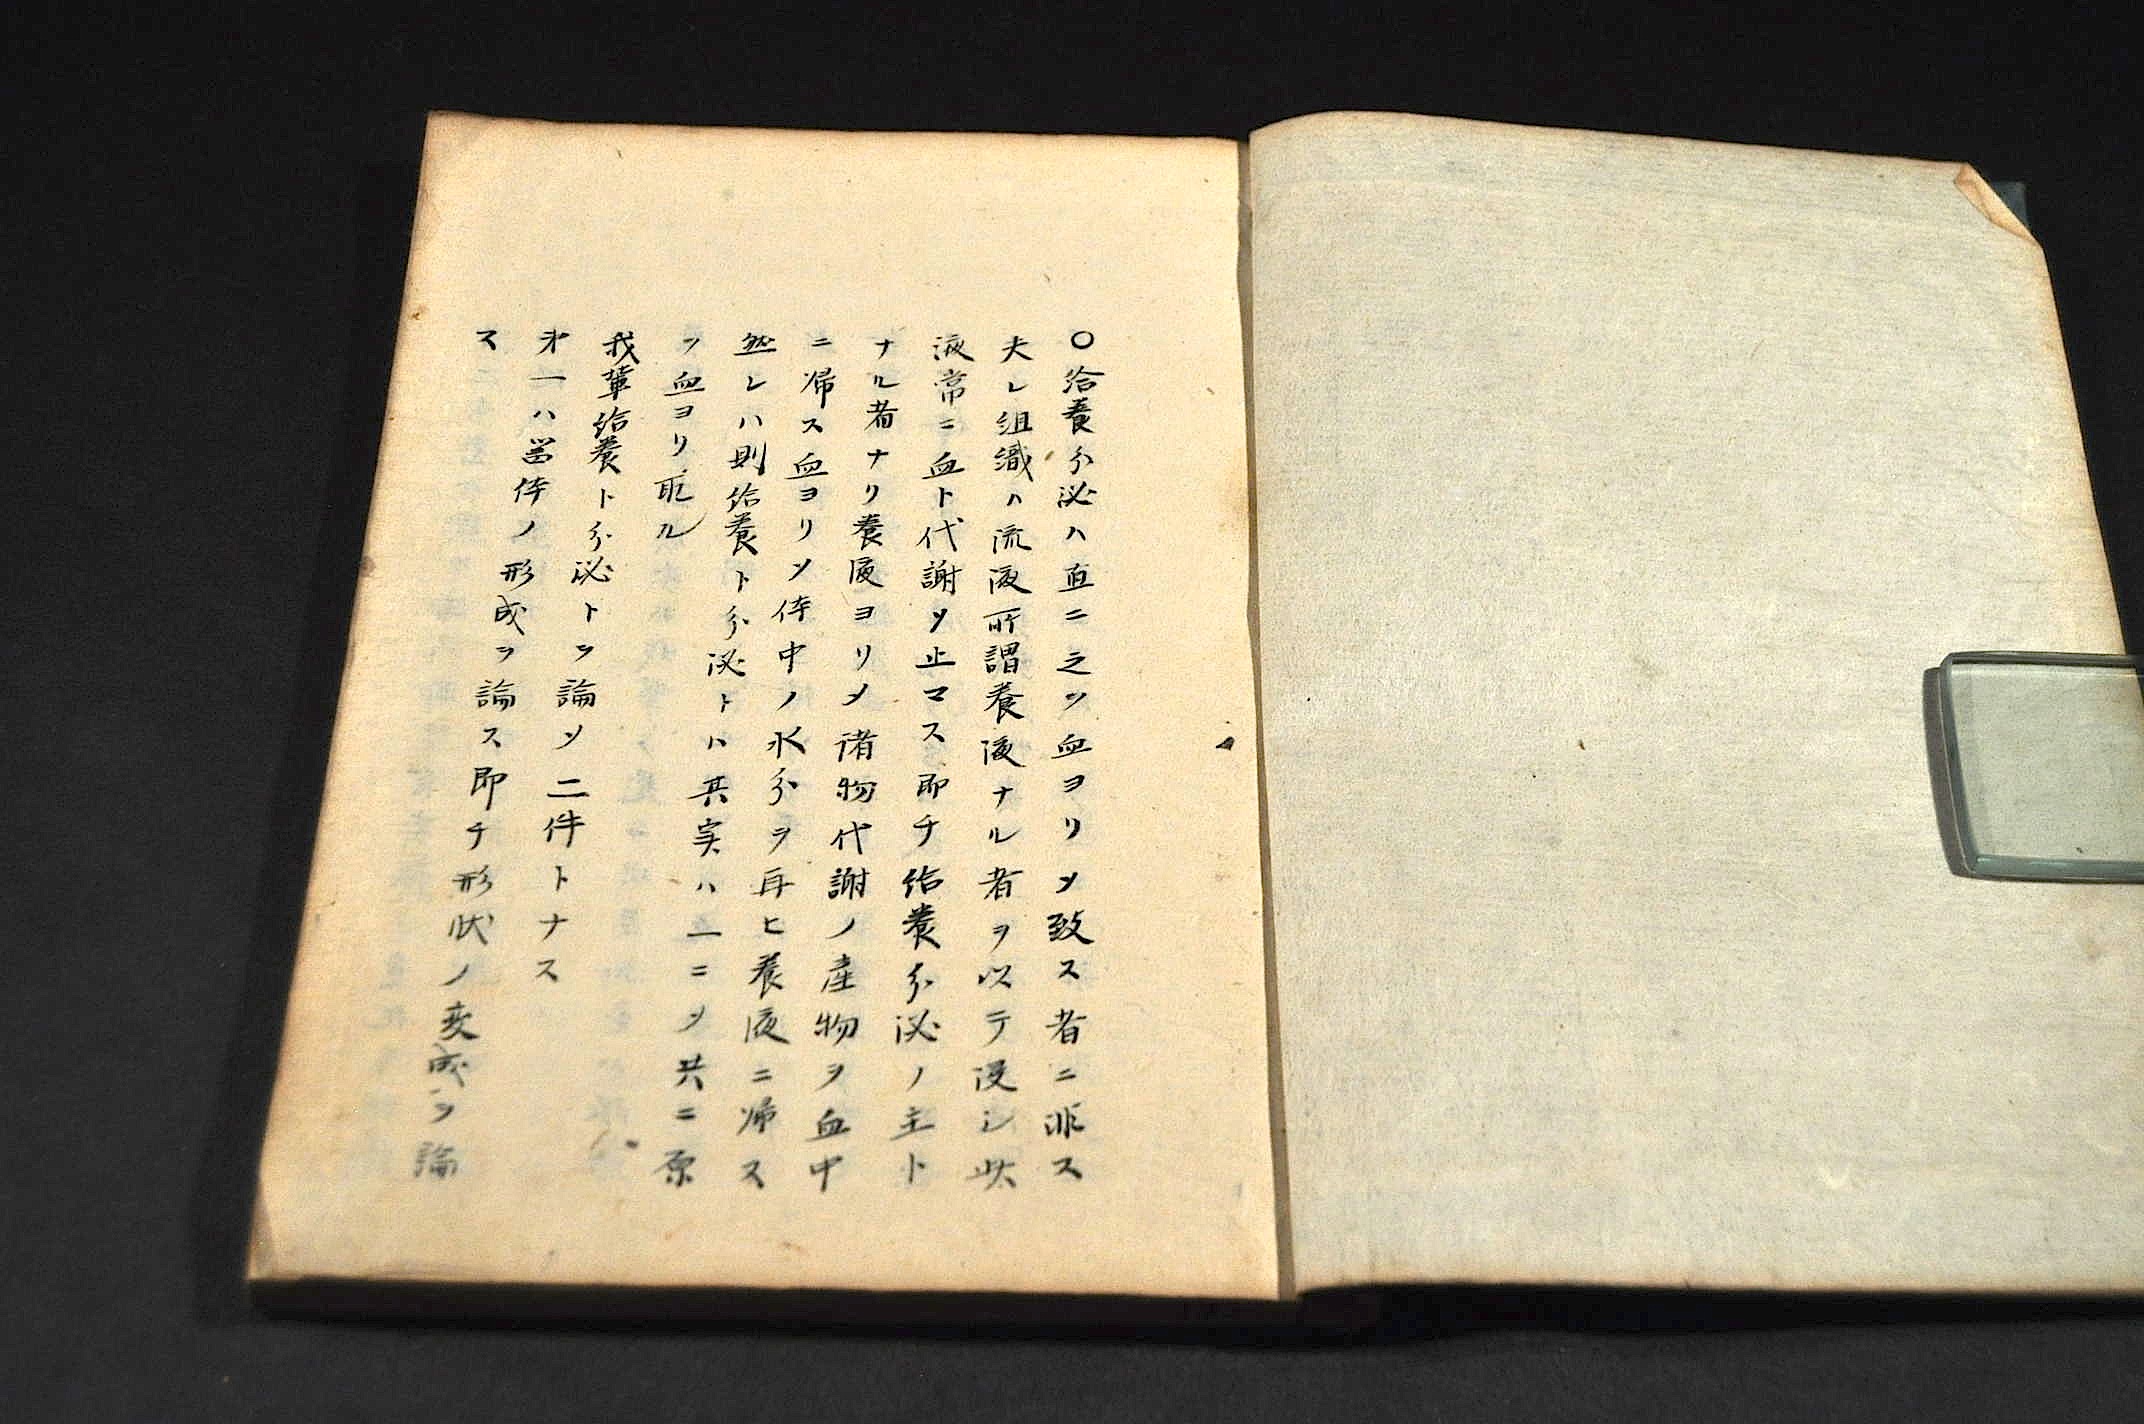 〇給養分泌ハ直ニ之ヲ血ヨリノ致ス者ニ非ス
夫レ組織ハ流液所謂養液ナル者ヲ以テ浸シ此
液常ニ血ト代謝ノ止マス即チ給養分泌ノ主ト
ナル者ナリ養液ヨリメ諸物代謝ノ産物ヲ血中
ニ帰ス血ヨリソ体中ノ水分ヲ再ヒ養液ニ帰ス
然レハ則給養ト分泌トハ其実ハ一ニソ共ニ原
ヲ血ヨリ取ル
我輩給養ト分泌トヲ論ソ二件トナス
第一ハ固体ノ形成ヲ論ス即チ形状ノ変成ヲ論
ス